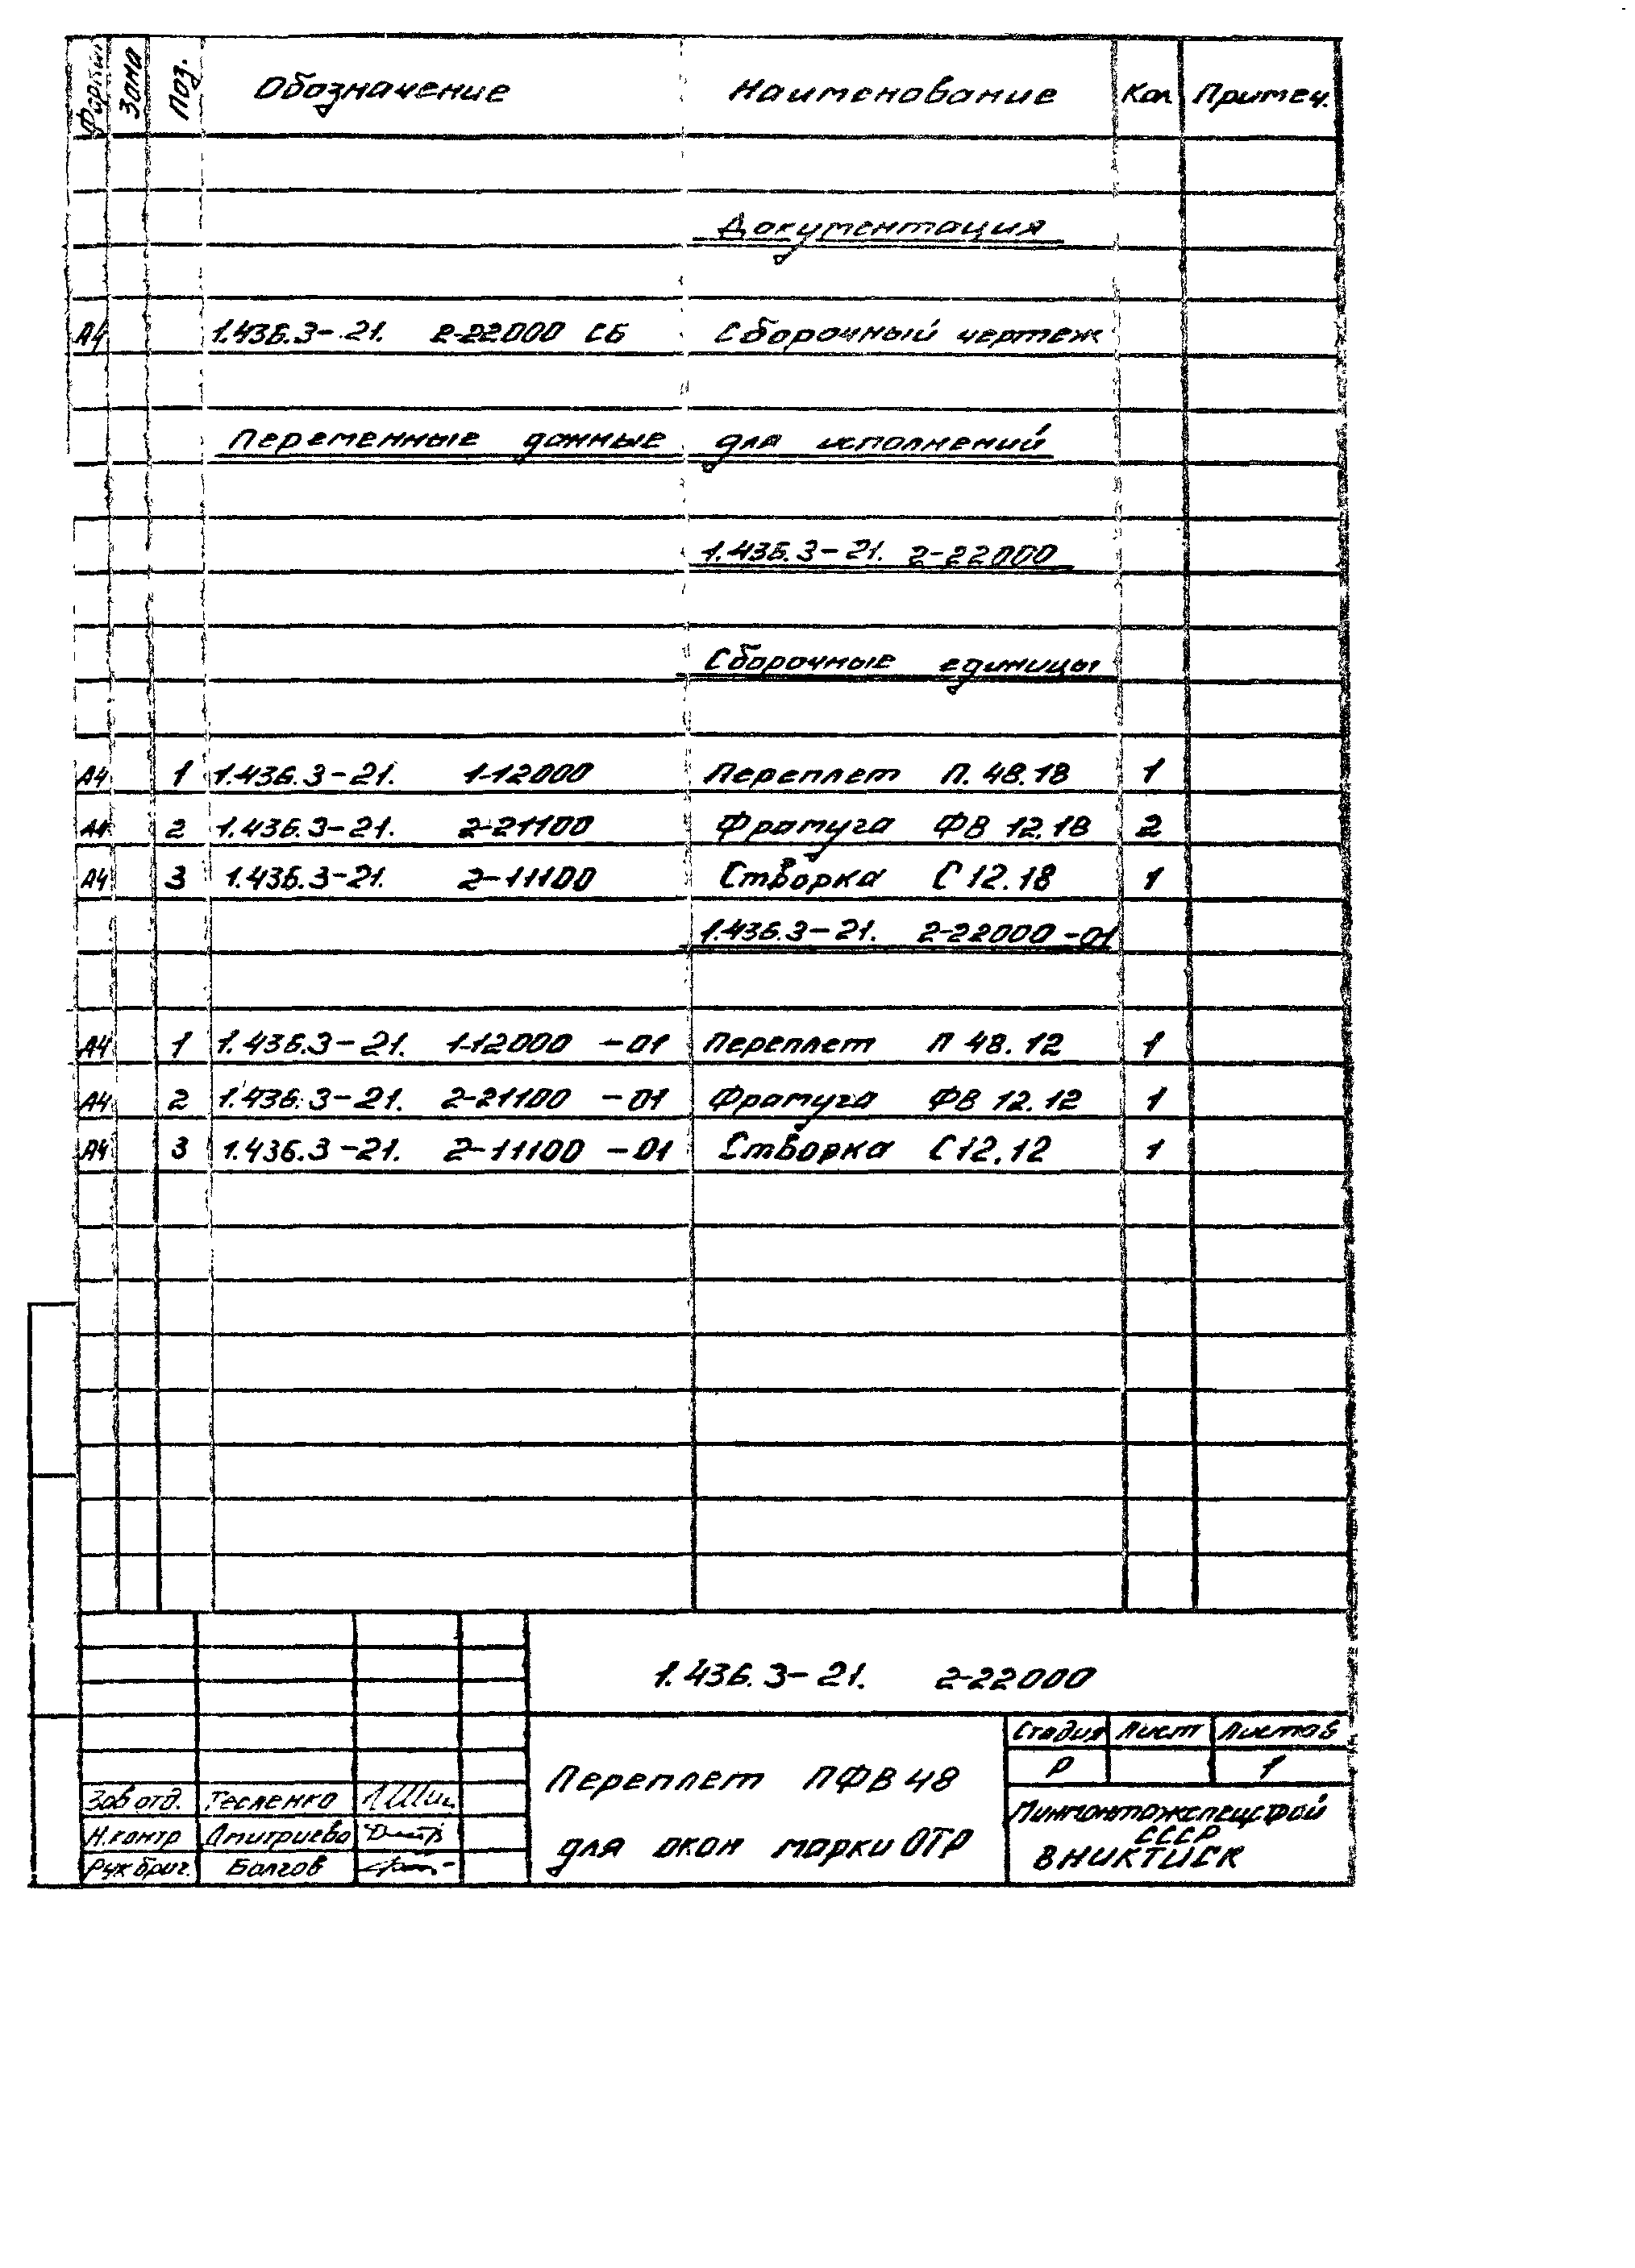 Формат Зона Поз. Обозначение Наименование Кол Примеч.
Документация
А4 1.436.3-21. 2-22000 СБ Сборочный чертеж
Переменные данные для исполнений
1.436.3-21. 2-22000
Сборочные единицы
А4 1 1.436.3-21. 1-12000 Переплет П. 48.18 1
А4 2 1.436.3-21. 2-21100 Фрамуга ФВ 12.18 2
А4 3 1.436.3-21. 2-11100 Створка С 12.18 1
1.436.3-21. 2-22000-01
А4 1 1.436.3-21. 1-12000 -01 Переплет П 48.12 1
А4 2 1.436.3-21. 2-21100 -01 Фрамуга ФВ 12.12 1
А4 3 1.436.3-21. 2-11100 -01 Створка С12.12 1
1.436.3-21. 2-22000
Стадия Лист Листов
Р 1
Переплет ПФВ 48
для окон марки ОТР
Минмонтажспецстрой
СССР
ВНИКТИСК
Зав отд. Тесленко
Н.контр Дмитриева
Рук бриг. Балгов